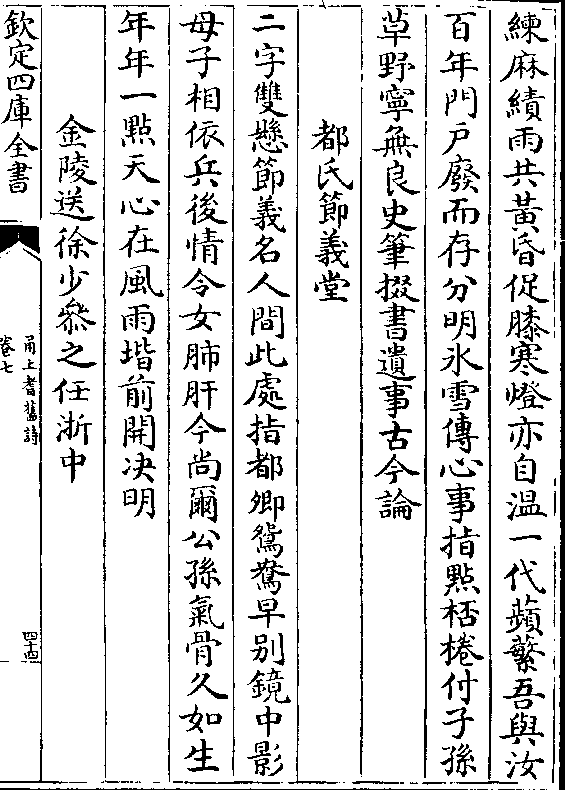 練麻績雨共黃昏促膝寒燈亦自温一代蘋蘩吾與汝
百年門戶廢而存分明氷雪傳心事指點桮棬付子孫
草野寧無良史筆掇書遺事古今論
都氏節義堂
二字雙懸節義名人間此處指都卿鴛鴦早别鏡中影
母子相依兵後情令女肺肝今尚爾公孫氣骨久如生
年年一點天心在風雨堦前開决明
金陵送徐少叅之任浙中
欽定四庫全書
甬上耆舊詩
卷七
四十四